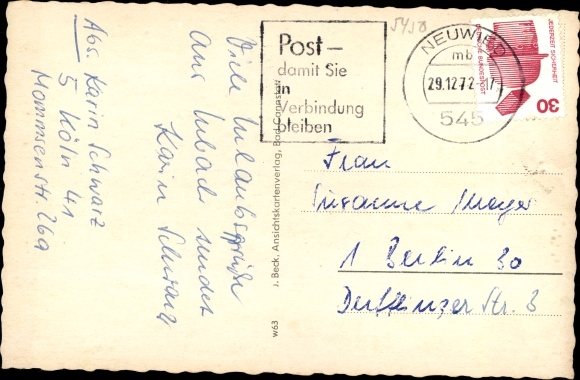 Abs. Karin Schwarz
5 Köln 41
Mommsenstr. 26a
Viele Urlaubsgrüße
aus Urbach sendet
Karin Schwarz
J. Beck, Ansichtskartenverlag, Bad Cannstatt
w63
5450
Post –
damit Sie
in
Verbindung
bleiben
NEUWIED
mb
29.12.72
545
JEDERZEIT SICHERHEIT
DEUTSCHE BUNDESPOST
30
Frau
Susanne Meyer
1 Berlin 30
Derfflinger Str. 8